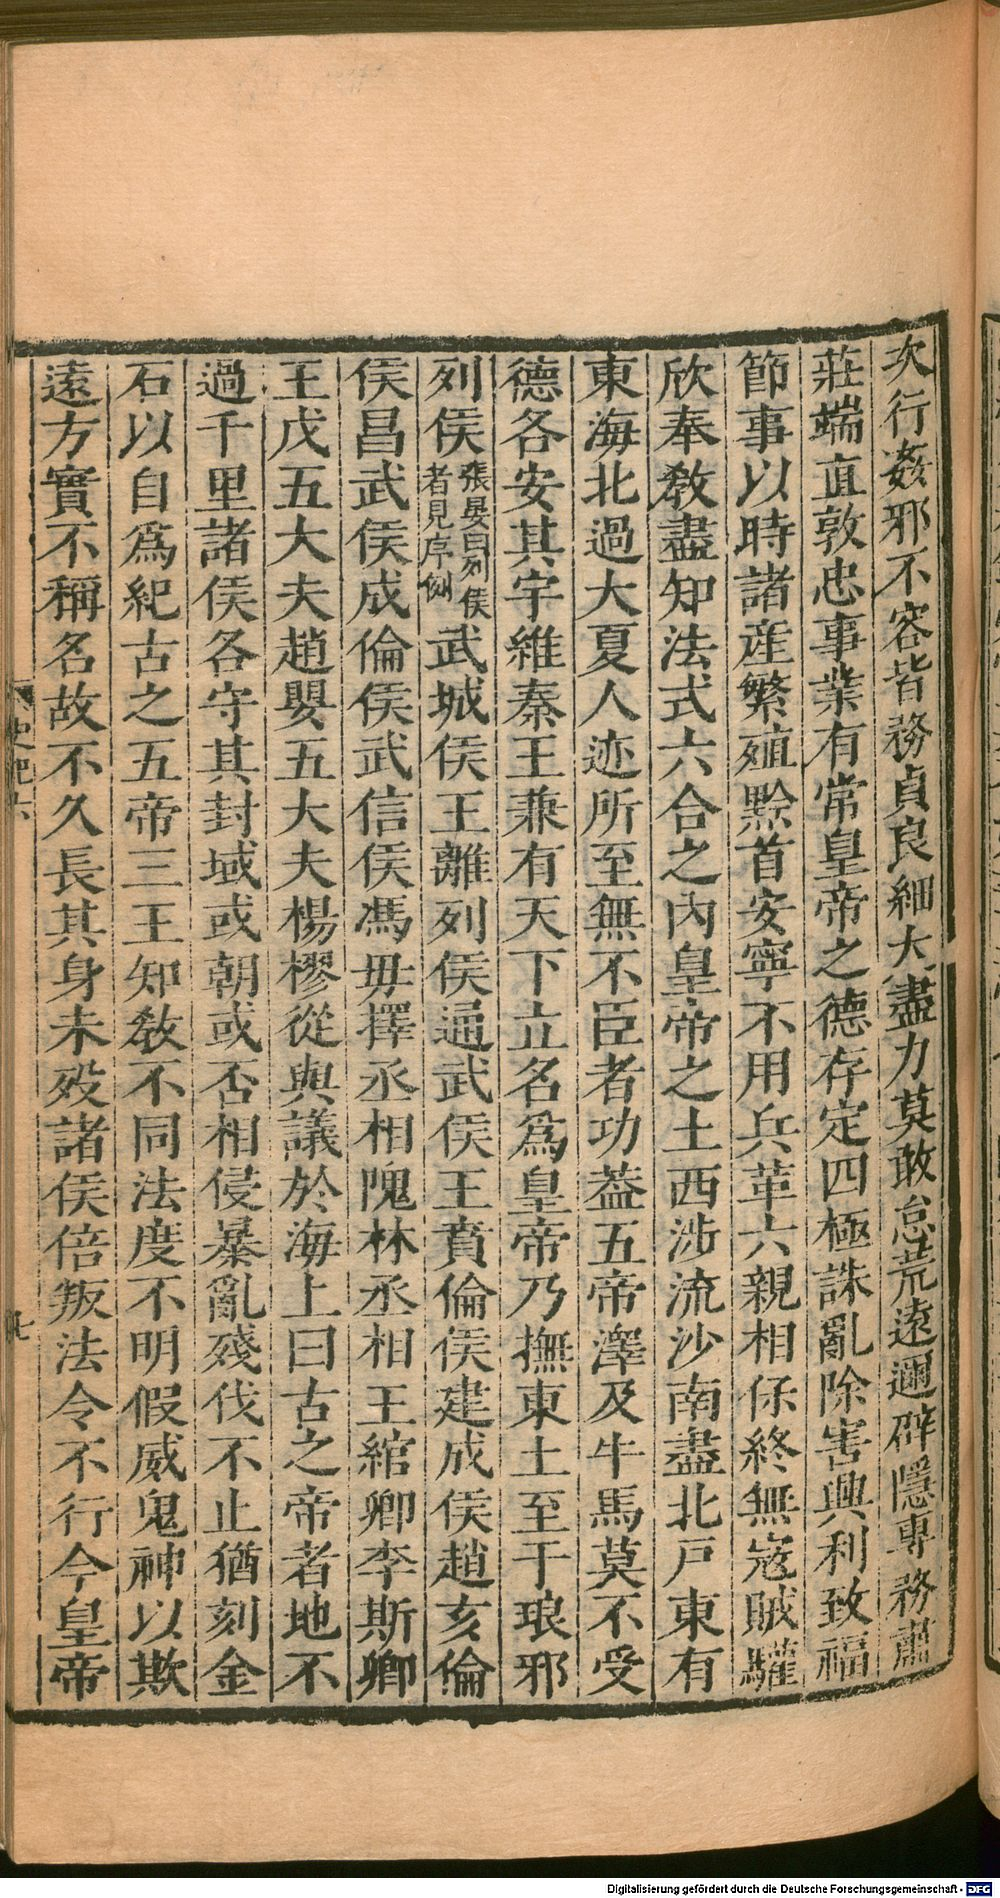 次行姦邪不容皆務貞良細大盡力莫敢怠荒遠邇辟隱專務肅
莊端直敦忠事業有常皇帝之德存定四極誅亂除害興利致福
節事以時諸産繁殖黔首安寧不用兵革六親相保終無寇賊驩
欣奉教盡知法式六合之内皇帝之土西涉流沙南盡北戸東有
東海北過大夏人迹所至無不臣者功葢五帝澤及牛馬莫不受
德各安其宇維秦王兼有天下立名爲皇帝乃撫東土至于琅邪
列侯張晏曰列侯者見序例武城侯王離列侯通武侯王賁倫侯建成侯趙亥倫
侯昌武侯成倫侯武信侯馮毋擇丞相隗林丞相王綰卿李斯卿
王戊五大夫趙嬰五大夫楊樛從與議於海上曰古之帝者地不
過千里諸侯各守其封域或朝或否相侵暴亂殘伐不止猶刻金
石以自爲紀古之五帝三王知教不同法度不明假威鬼神以欺
遠方實不稱名故不久長其身未歿諸侯倍叛法令不行今皇帝
史紀六
Digitalisierung gefördert durch die Deutsche Forschungsgemeinschaft - DFG